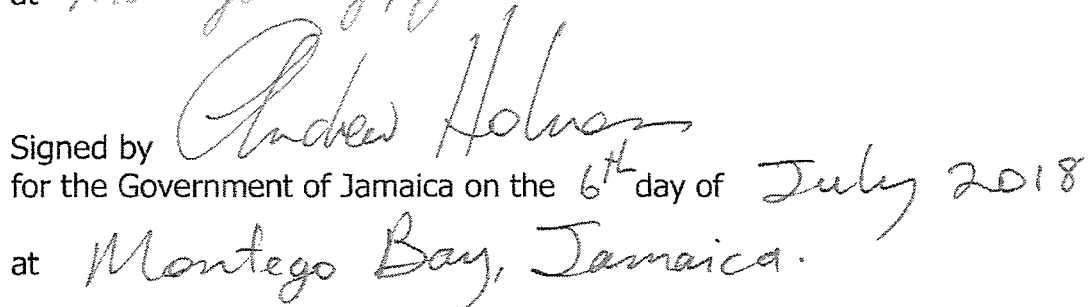 at
Signed by Andrew Holness
for the Government of Jamaica on the 6th day of July 2018
at Montego Bay, Jamaica.